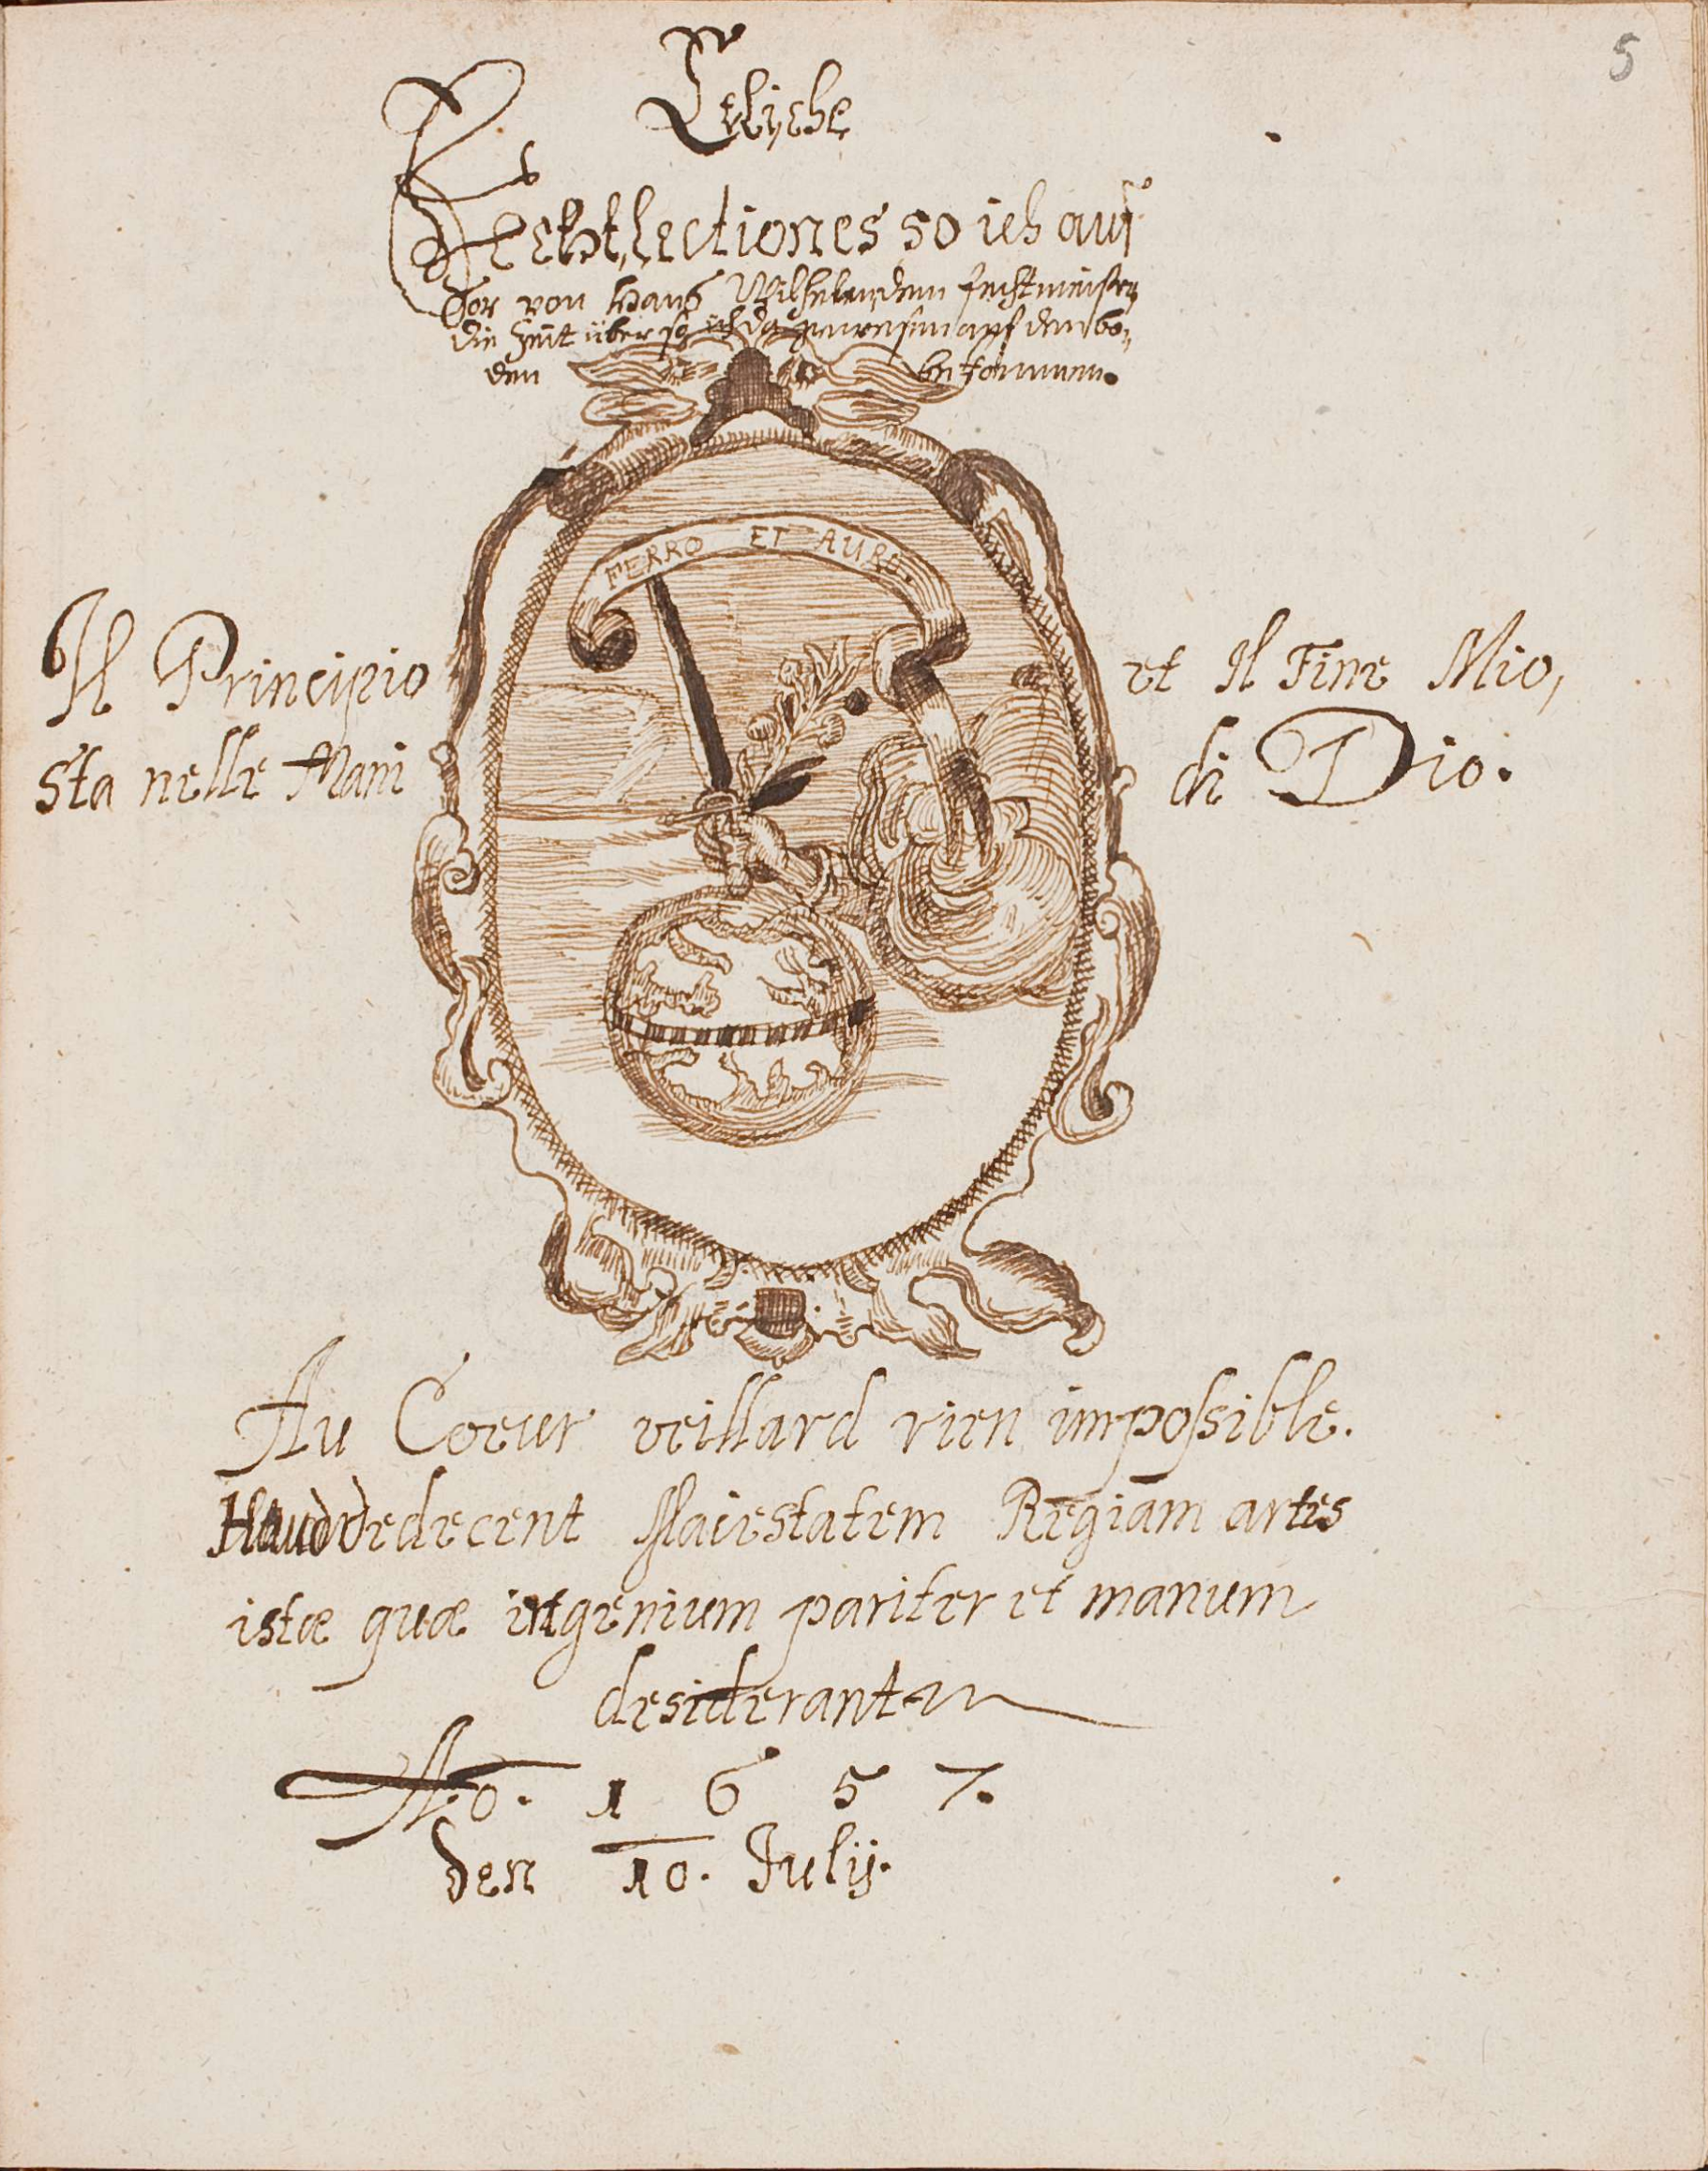 5
Etliche
Fechtlectiones so ich auf
von Hanß Wilhelm dem fechtmeister
die Zeit über so ich da gewesen auf dem bo-
den bekommen.
FERRO ET AURO.
Il Principio et Il Fine Mio,
sta nelle Mani di Dio.
Au Coeur veillard rien impossible.
Haud dedecent Maiestatem Regiam artes
istæ quæ ingenium pariter et manum
desiderant
Ao. 1657.
den 10. Julij.